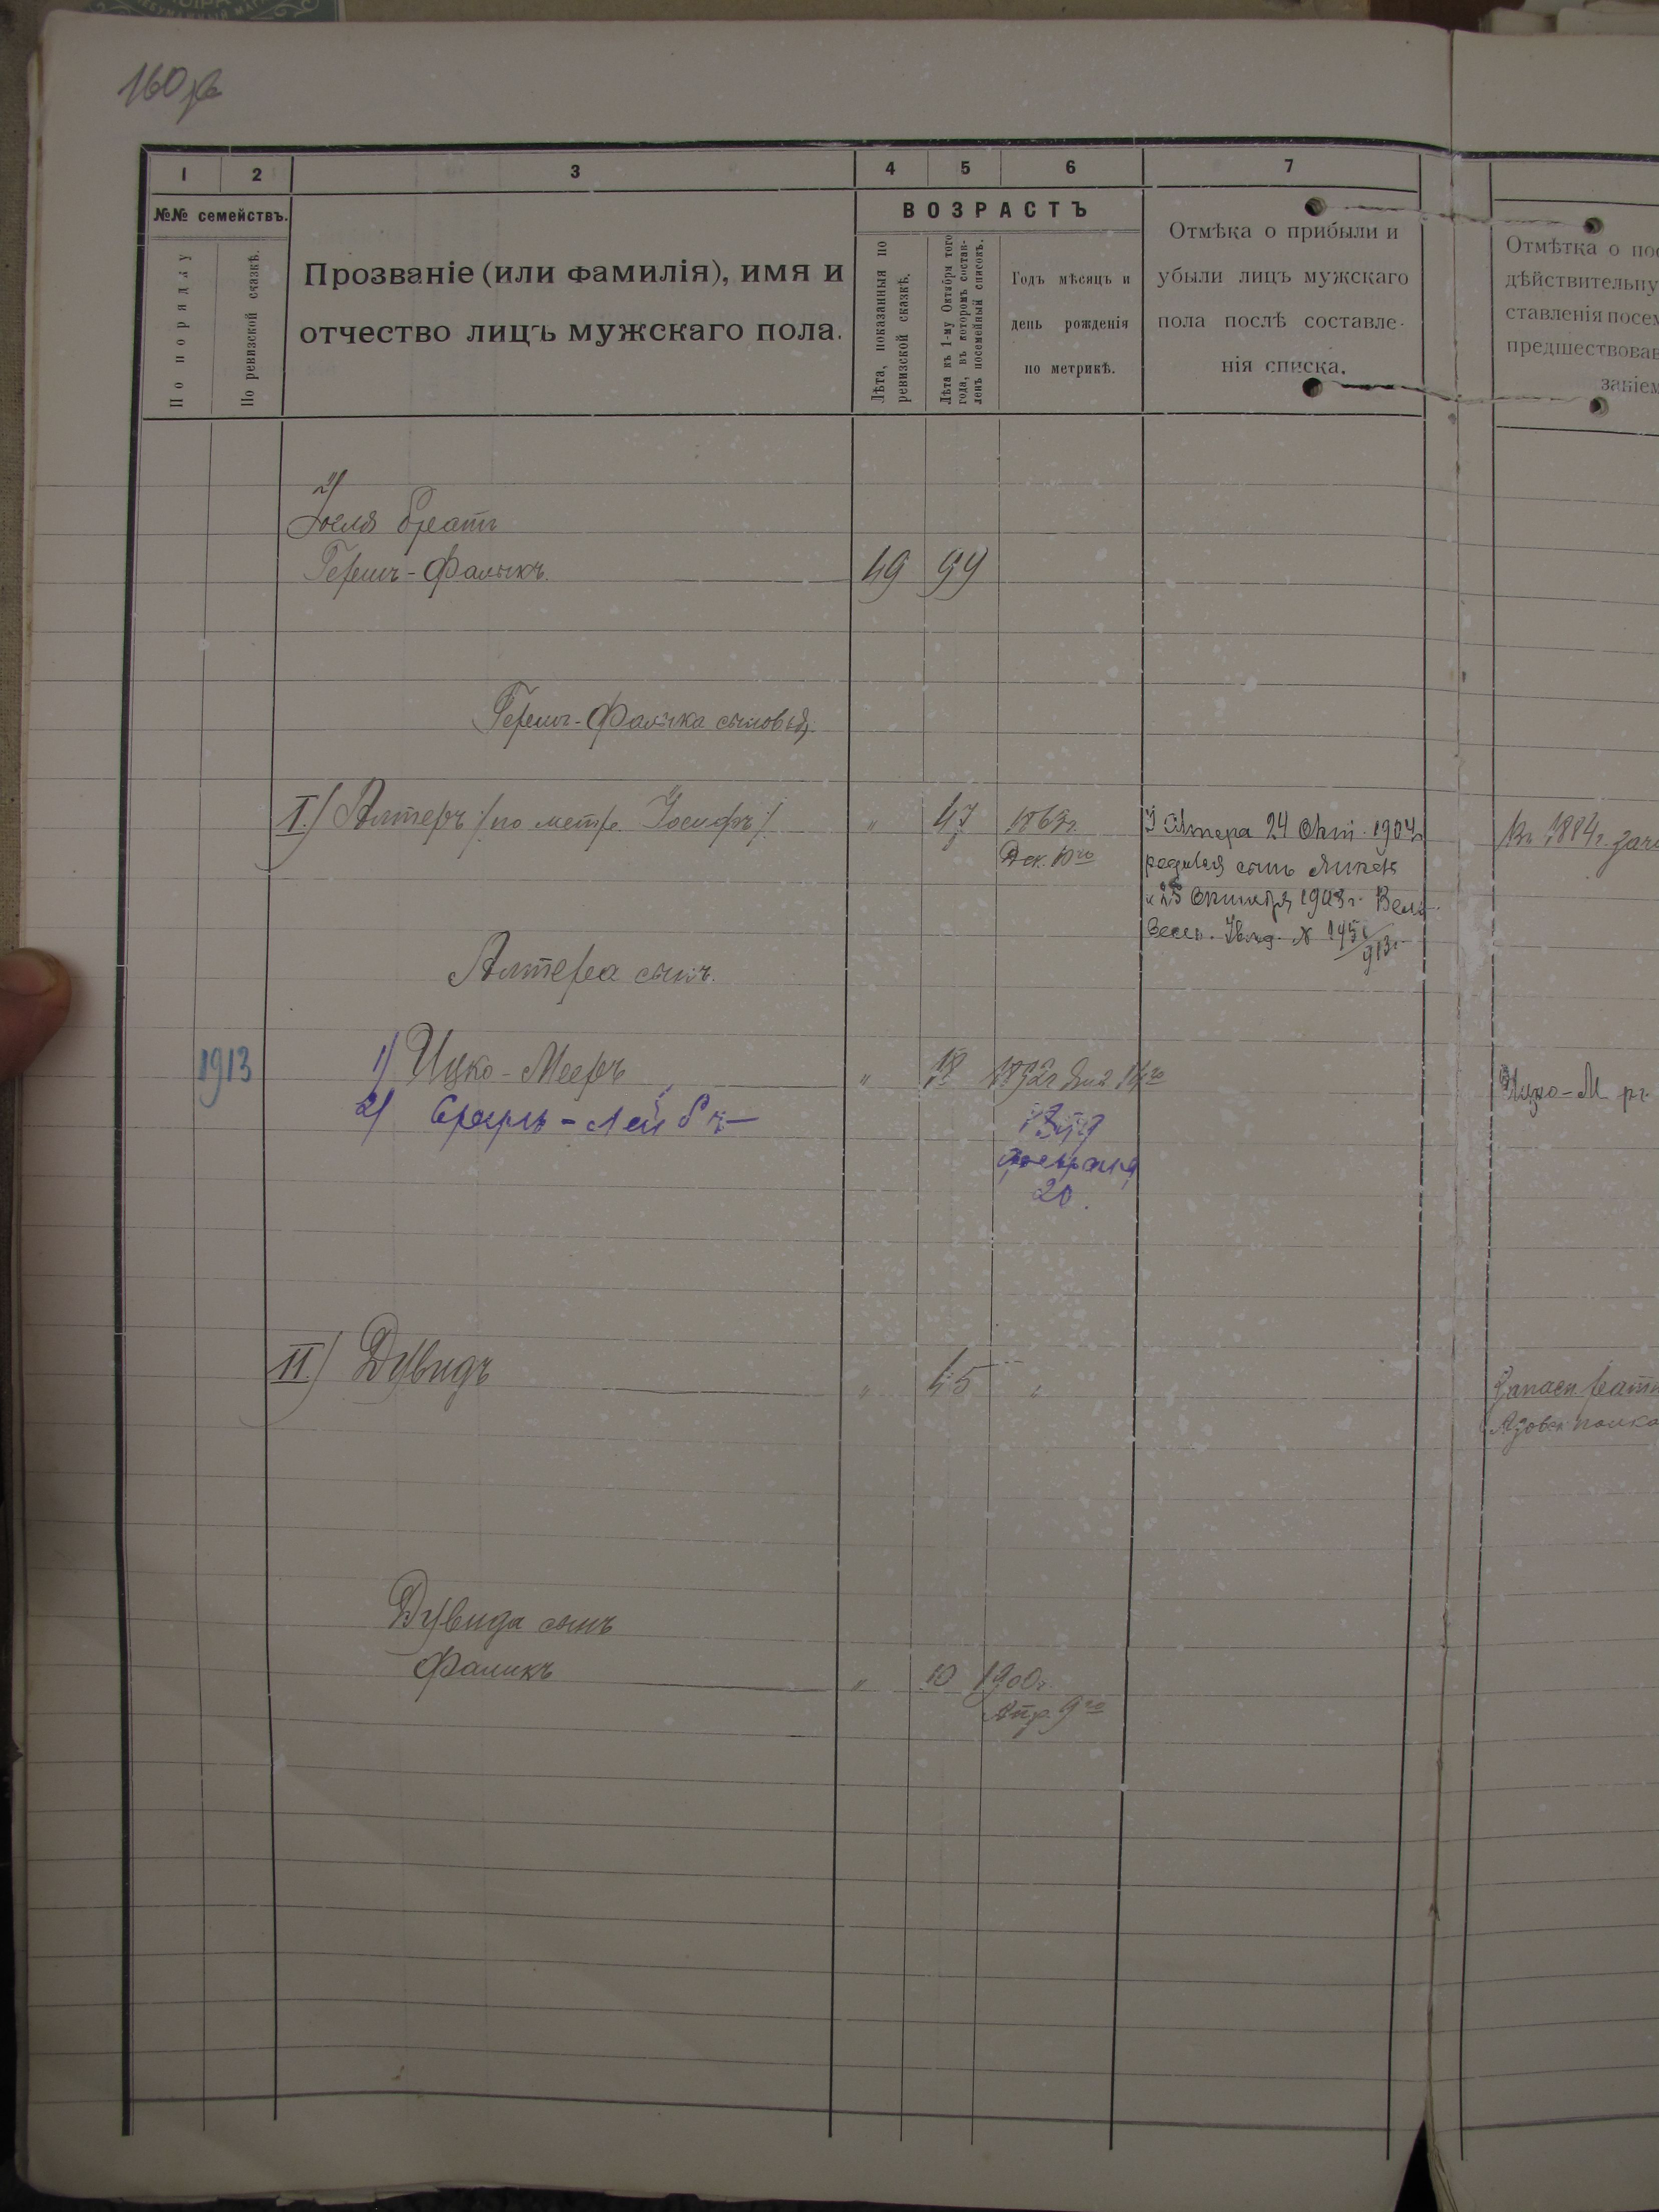 160
1
2
3
4
5
6
7
№№ семействъ.
По порядку
По ревизской сказкѣ.
Прозваніе (или фамилія), имя и
отчество лицъ мужскаго пола.
ВОЗРАСТЪ
Лѣта, показанныя по
ревизской сказкѣ.
Лѣта къ 1-му Октября того
года, въ которомъ состав-
ленъ посемейный списокъ.
Годъ мѣсяцъ и
день рожденія
по метрикѣ.
Отмѣка о прибыли и
убыли лицъ мужскаго
пола послѣ составле-
нія списка.
Отмѣтка о пос
дѣйствительну
ставленія посем
предшествовав
заніем
2)
Іоселя братъ
Гершъ-Фаликъ. 49 99
Гершъ-Фалика сыновья
I.) Алтеръ /по метр. Іосифъ/ " 47 1863г.
Дек. 10го
У Алтера 24 Окт. 1904г
родился сынъ
и 25 1903г.
№ 145
913г.
Въ 1884г. зач
Алтера сынъ.
1913
1) Ицко-Мееръ " 18 1892г. 14го
Ицко-М ръ
2) Сруль-Лейбъ
Февраля
20.
II.) Дувидъ " 45 "
Запасн.
Азовск. полка
Дувида сынъ
Фаликъ " 10 1900г.
Апр. 9го